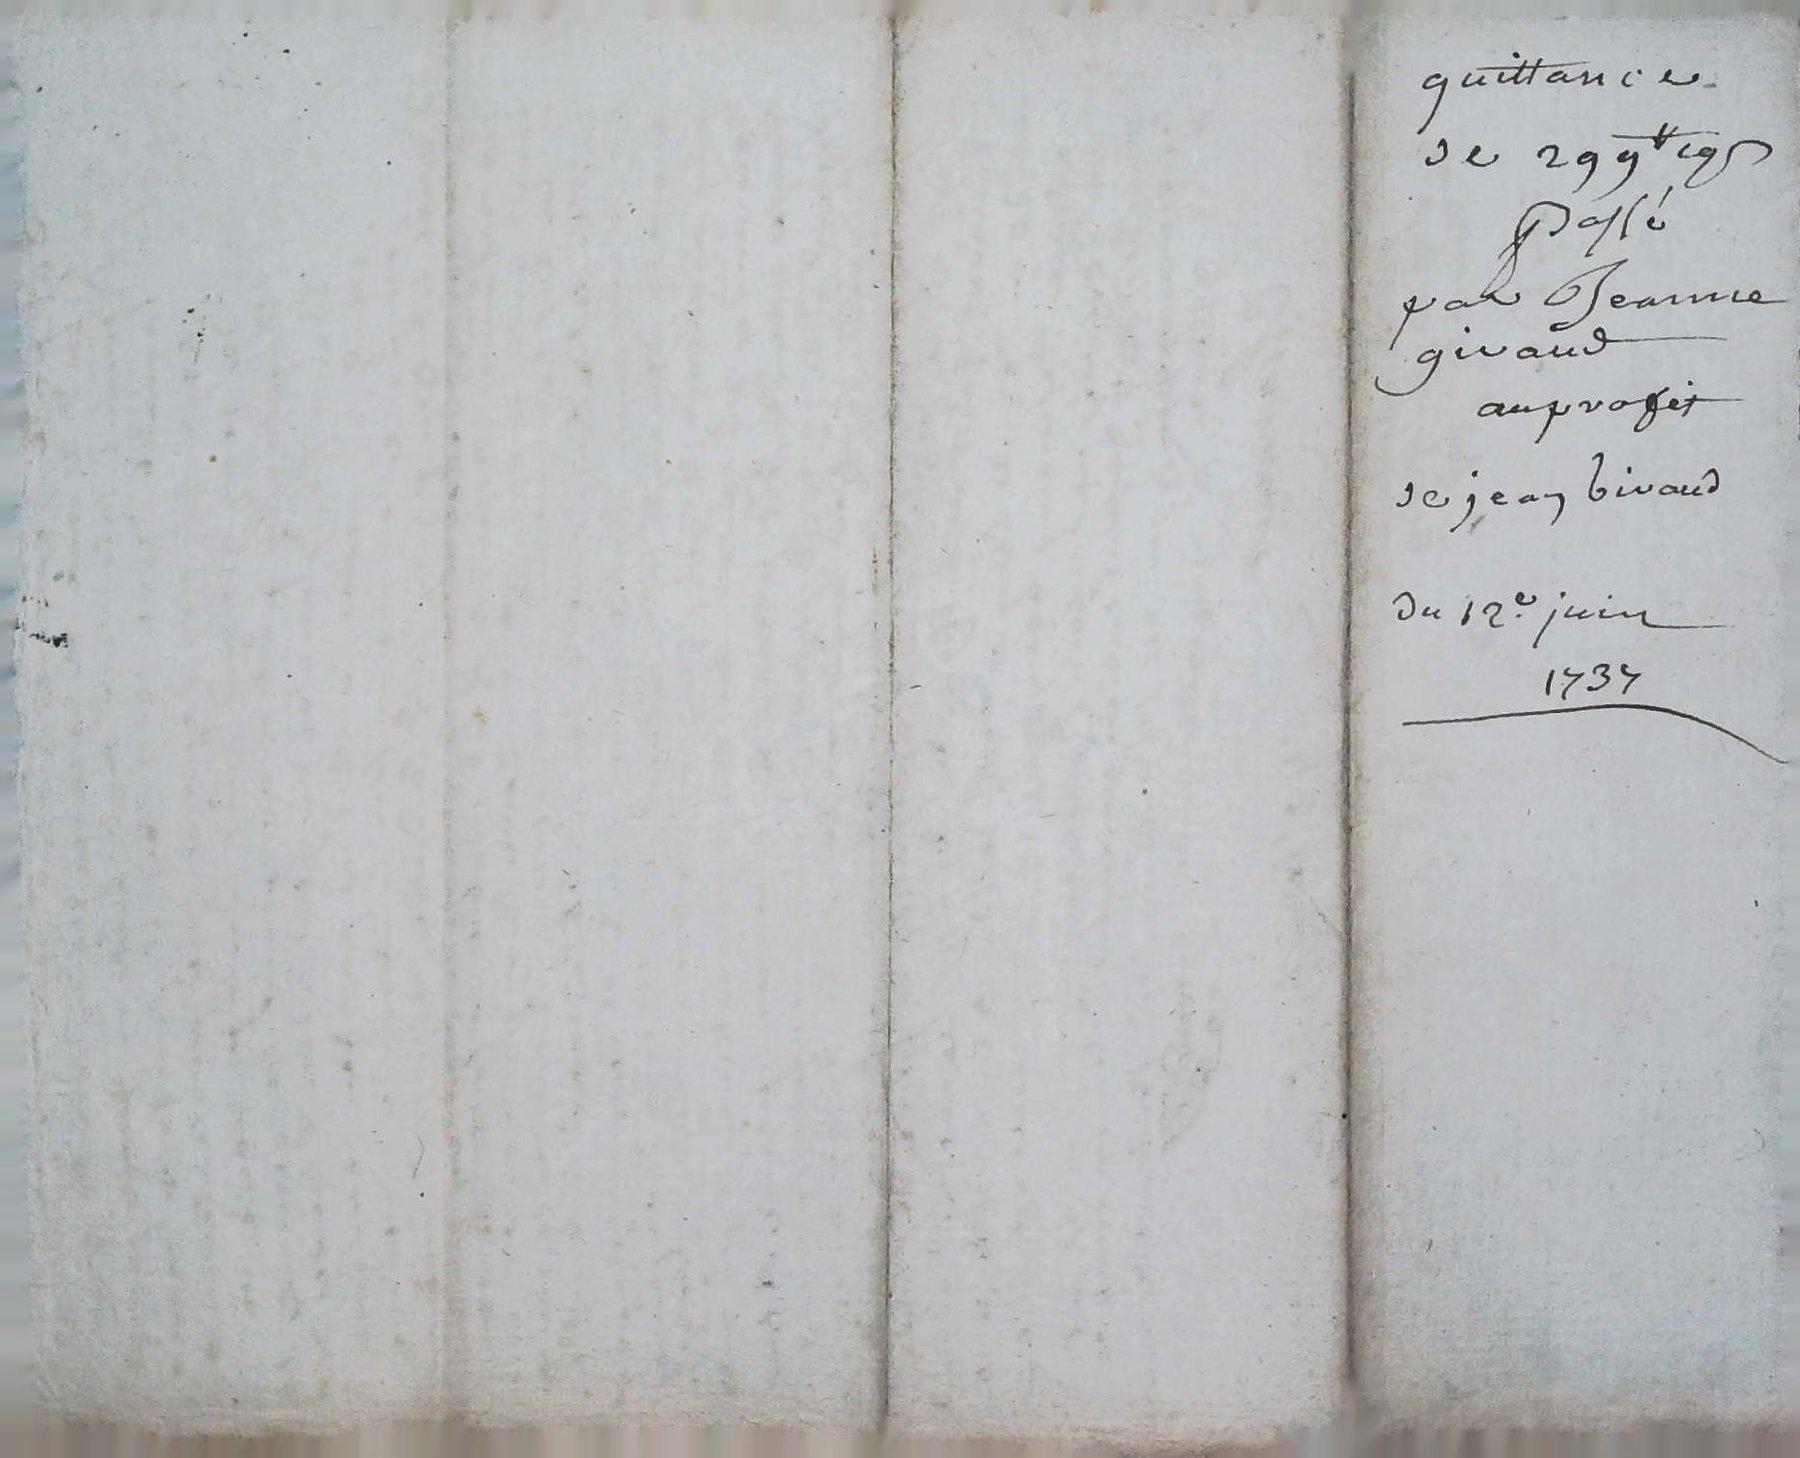 quittance
de 299tt 19s
passé
par Jeanne
givaud
au profit
de jean bivaud
du 12e juin
1737